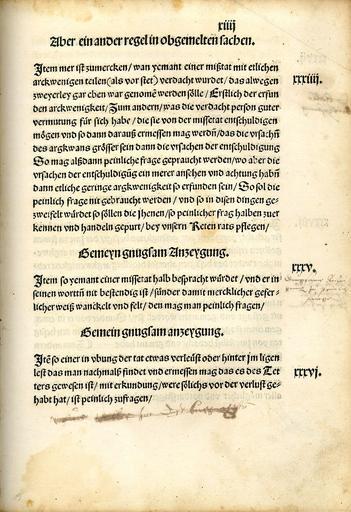 xiiij
Aber ein ander regel in obgemelten sachen.
Item mer ist zumercken/ wan yemant einer mißtat mit etlichen
arckwenigen teilen (als vor stet) verdacht wurdet/ das alwegen
zweyerley gar eben war genomē werden sölle/ Erstlich der erfun
den arckwenigkeit/ Zum andern/ was die verdacht person guter
vermutung für sich habe/ die sie von der missetat entschuldigen
mögen vnd so dann darauß ermessen mag werdn̄/ das die vrsachn̄
des argkwans grösser sein dann die vrsachen der entschuldigung
So mag alßdann peinliche frage gepraucht werden/ wo aber die
vrsachen der entschuldigūg ein merer ansehen vnd achtung habn̄
dann etliche geringe argkwenigkeit so erfunden sein/ So sol die
peinlich frage nit gebraucht werden/ vnd so in disen dingen ge-
zweifelt würdet so söllen die Jhenen/ so peinlicher frag halben zuer
kennen vnd handeln gepurt/ bey vnsern Reten rats pflegen/
xxxiiij.
Gemeyn gnugsam Anzeygung.
Item so yemant einer missetat halb bespracht würdet/ vnd er in
seinen wortn̄ nit bestendig ist/ sunder damit mercklicher gefer-
licher weiß wanckelt vnd felt/ den mag man peinlich fragen/
xxxv.
Gemein gnugsam anzeygung.
Itē so einer in vbung der tat etwas verleüst oder hinter jm ligen
lest das man nachmalß findet vnd ermessen mag das es des Tet
ters gewesen ist/ mit erkundung/ wer solichs vor der verlust ge-
habt hat/ ist peinlich zufragen/
xxxvj.